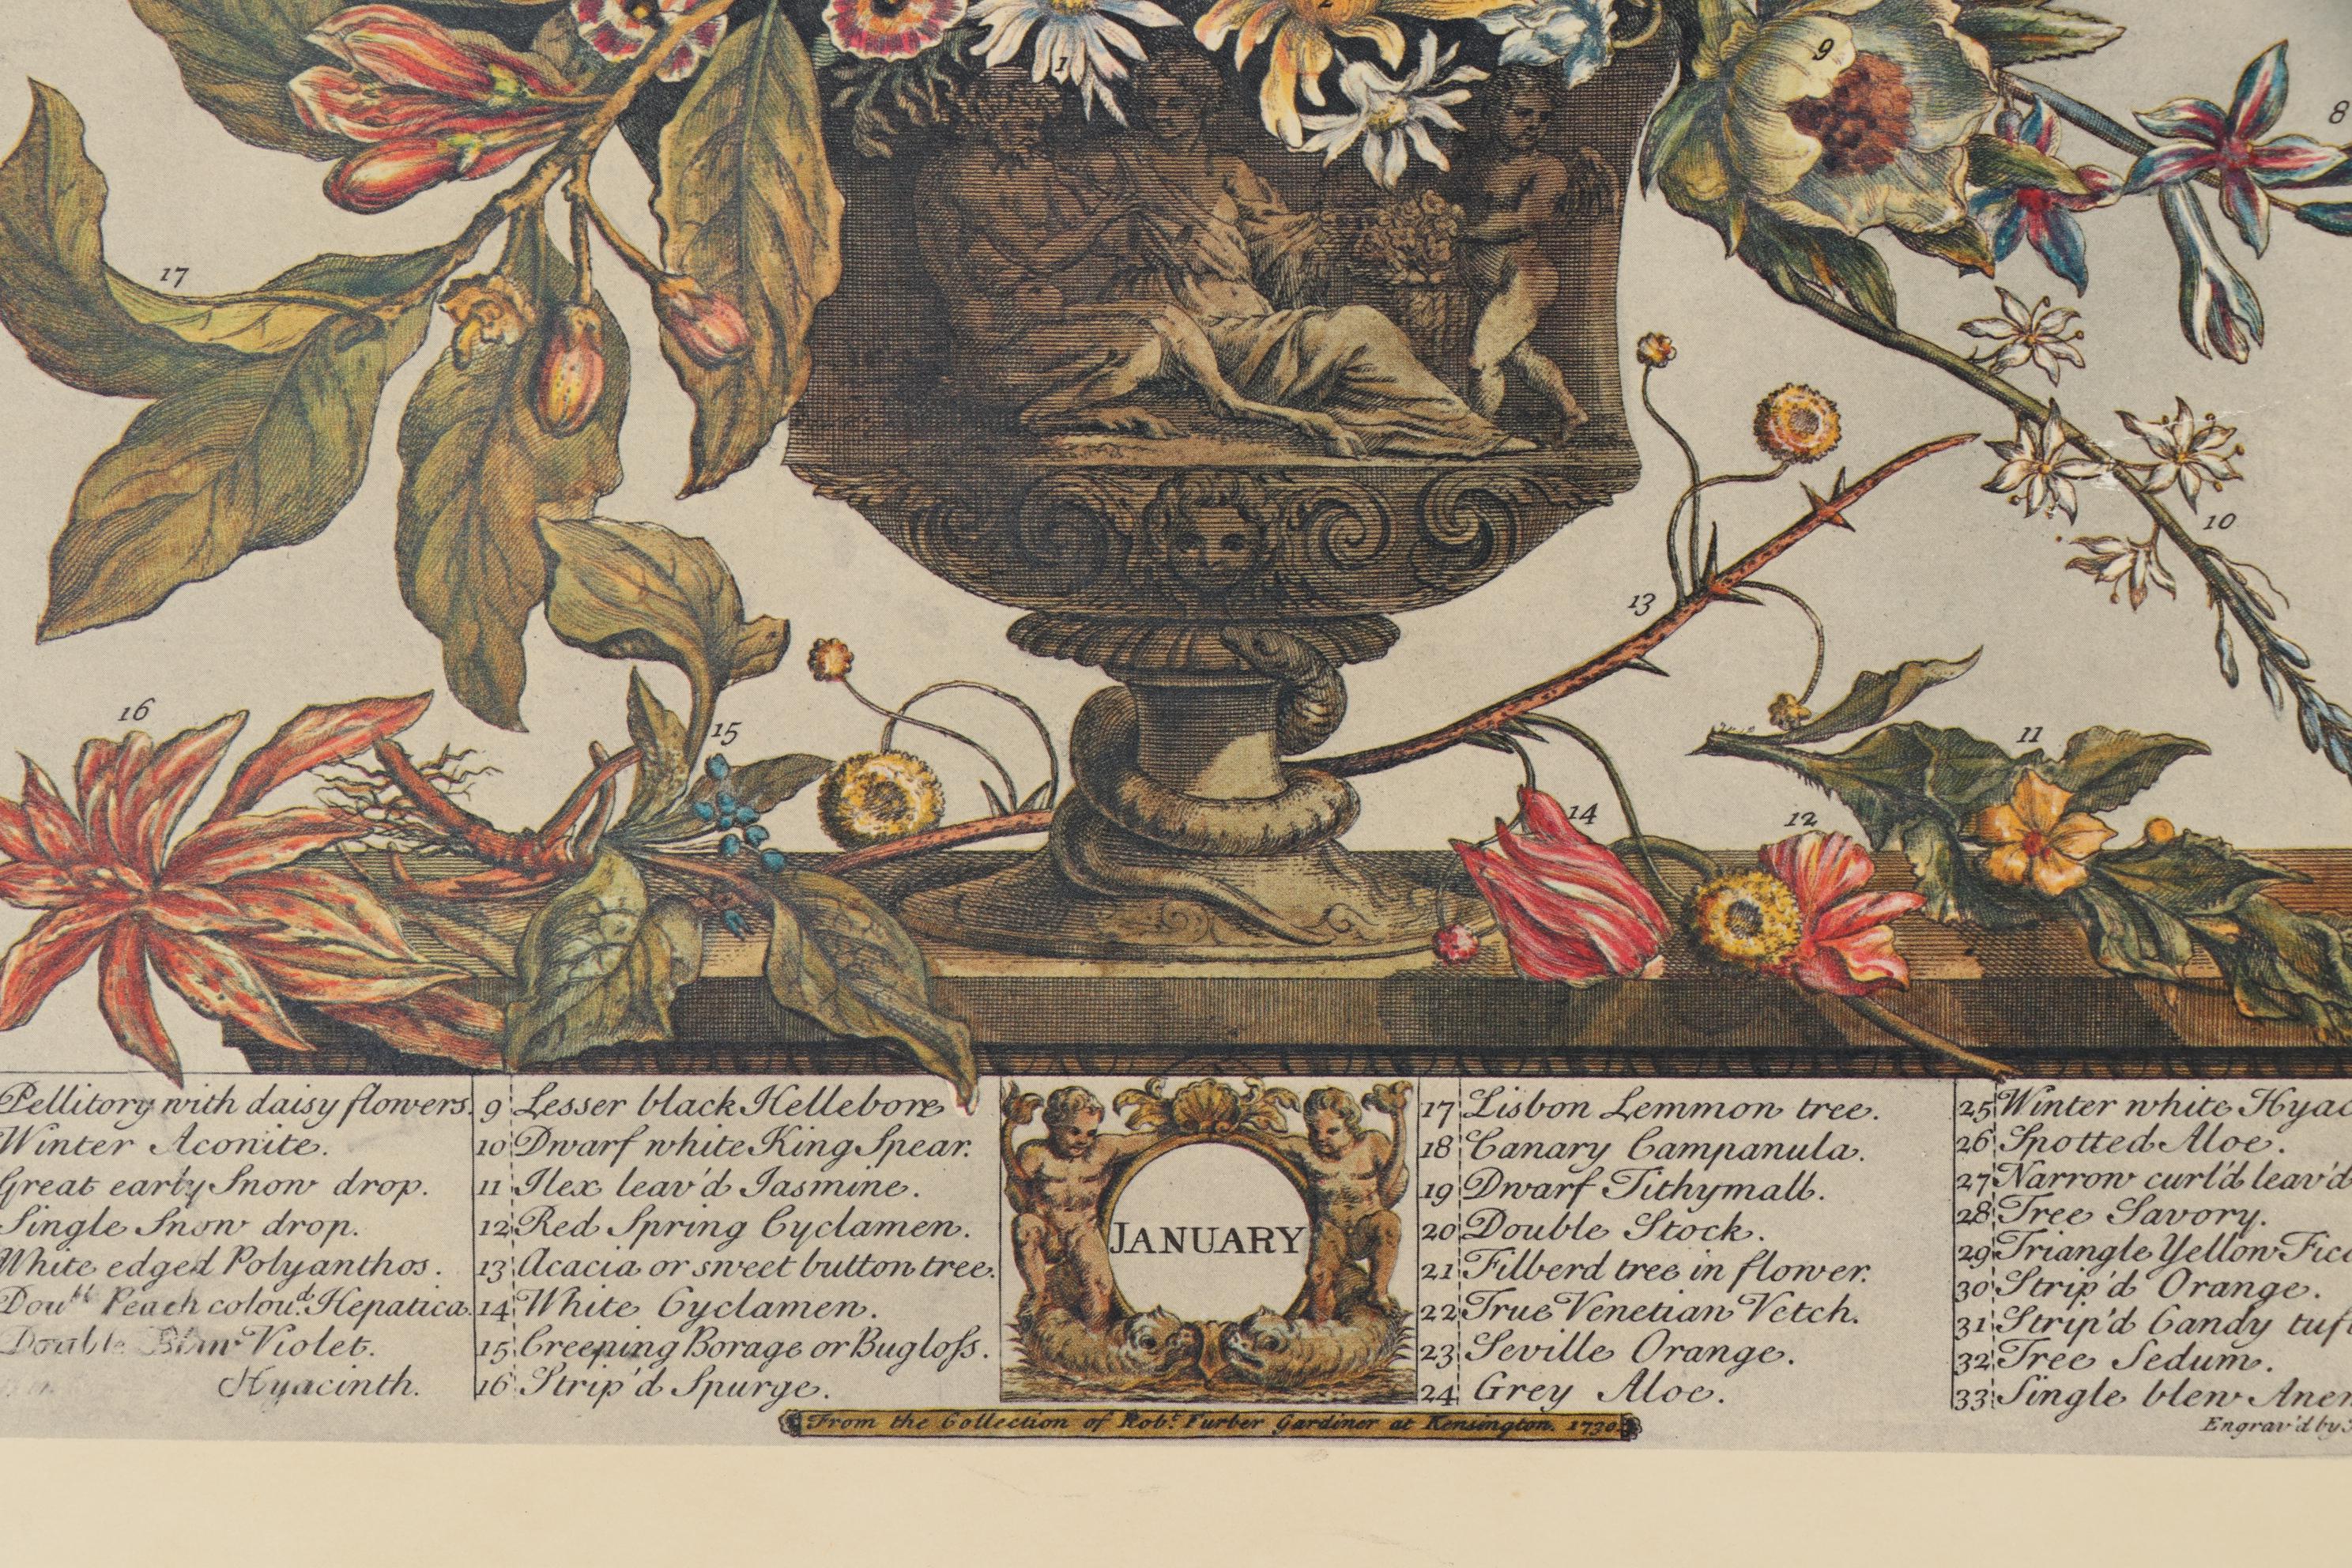 1
2
9
8
17
10
13
16
15
11
14
12
Pellitory with daisy flowers.
Winter Aconite.
Great early Snow drop.
Single Snow drop.
White edged Polyanthos.
Doubl Peach colou.d Hepatica.
Double Blew Violet.
Hyacinth.
9 Lesser black Hellebore
10 Dwarf white King Spear.
11 Ilex leav'd Jasmine.
12 Red Spring Cyclamen.
13 Acacia or sweet button tree.
14 White Cyclamen.
15 Creeping Borage or Bugloſs.
16 Strip'd Spurge.
JANUARY
17 Lisbon Lemmon tree.
18 Canary Campanula.
19 Dwarf Tithymall.
20 Double Stock.
21 Filberd tree in flower.
22 True Venetian Vetch.
23 Seville Orange.
24 Grey Aloe.
25 Winter white Hyac
26 Spotted Aloe.
27 Narrow curl'd leav'd
28 Tree Savory.
29 Triangle Yellow Fico
30 Strip'd Orange.
31 Strip'd Candy tuft
32 Tree Sedum.
33 Single blew Anem
From the Collection of Rob.t Furber Gardiner at Kensington. 1730.
Engrav'd by